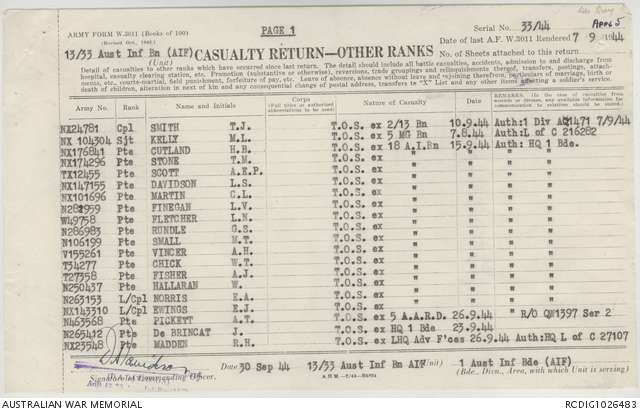 Appx 5
ARMY FORM W.3011 (Books of 100)
PAGE 1
Serial No. 33/44
13/33 Aust Inf Bn (AIF)
(Unit)
CASUALTY RETURN—OTHER RANKS
Date of last A.F. W.3011 Rendered 7 9 1944
No. of Sheets attached to this return
Detail of casualties to other ranks which have occurred since last return. The detail should include all battle casualties, accidents, admission to and discharge from
hospital, casualty clearing station, etc. Promotion (substantive or otherwise), reversions, trade groupings and relinquishments thereof, transfers, postings, attachments, etc., courts-martial, field punishment, forfeiture of pay, etc. Leave of absence, absence without leave and rejoining therefrom, particulars of marriage, birth or
death of children, alteration in next of kin and any consequential change of postal address, transfers to "X" List and any other items affecting a soldier's service.
Army No. Rank Name and Initials Corps (Full titles or authorised abbreviations to be used) Nature of Casualty Date REMARKS.
NX24781 Cpl SMITH T.J. T.O.S. ex 2/13 Bn 10.9.44 Auth:1 Div AQ1471 7/9/44
NX 104304 Sjt KELLY M.L. T.O.S. ex 5 MG Bn 7.8.44 Auth:L of C 216282
NX176841 Pte CUTLAND H.B. T.O.S. ex 18 A.I.Bn 15.9.44 Auth: HQ 1 Bde.
NX174296 Pte STONE T.M. T.O.S. ex " " "
TX12455 Pte SCOTT A.E.P. T.O.S. ex " " "
NX147155 Pte DAVIDSON L.S. T.O.S. ex " " "
NX101696 Pte MARTIN C.L. T.O.S. ex " " "
N282959 Pte FINEGAN L.V. T.O.S. ex " " "
W49758 Pte FLETCHER L.N. T.O.S. ex " " "
N286983 Pte RUNDLE G.S. T.O.S. ex " " "
N106199 Pte SMALL M.T. T.O.S. ex " " "
V155261 Pte VINCER A.H. T.O.S. ex " " "
T34277 Pte CHICK W.T. T.O.S. ex " " "
T27358 Pte FISHER A.J. T.O.S. ex " " "
N250437 Pte HALLARAN W. T.O.S. ex " " "
N263153 L/Cpl NORRIS E.A. T.O.S. ex " " "
NX143310 L/Cpl EWINGS E.J. T.O.S. ex " " "
N463568 Pte PICKETT A.T. T.O.S. ex 5 A.A.R.D. 26.9.44 R/O QM1397 Ser 2
N265412 Pte De BRINCAT J. T.O.S. ex HQ 1 Bde 23.9.44
NX23548 Pte MADDEN R.H. T.O.S. ex LHQ Adv F'ces 26.9.44 Auth:HQ L of C 27107
Signature of Commanding Officer.
Date 30 Sep 44 13/33 Aust Inf Bn AIF (Unit) 1 Aust Inf Bde (AIF)
(Bde., Divn., Area, with which Unit is serving)
AUSTRALIAN WAR MEMORIAL
RCDIG1026483